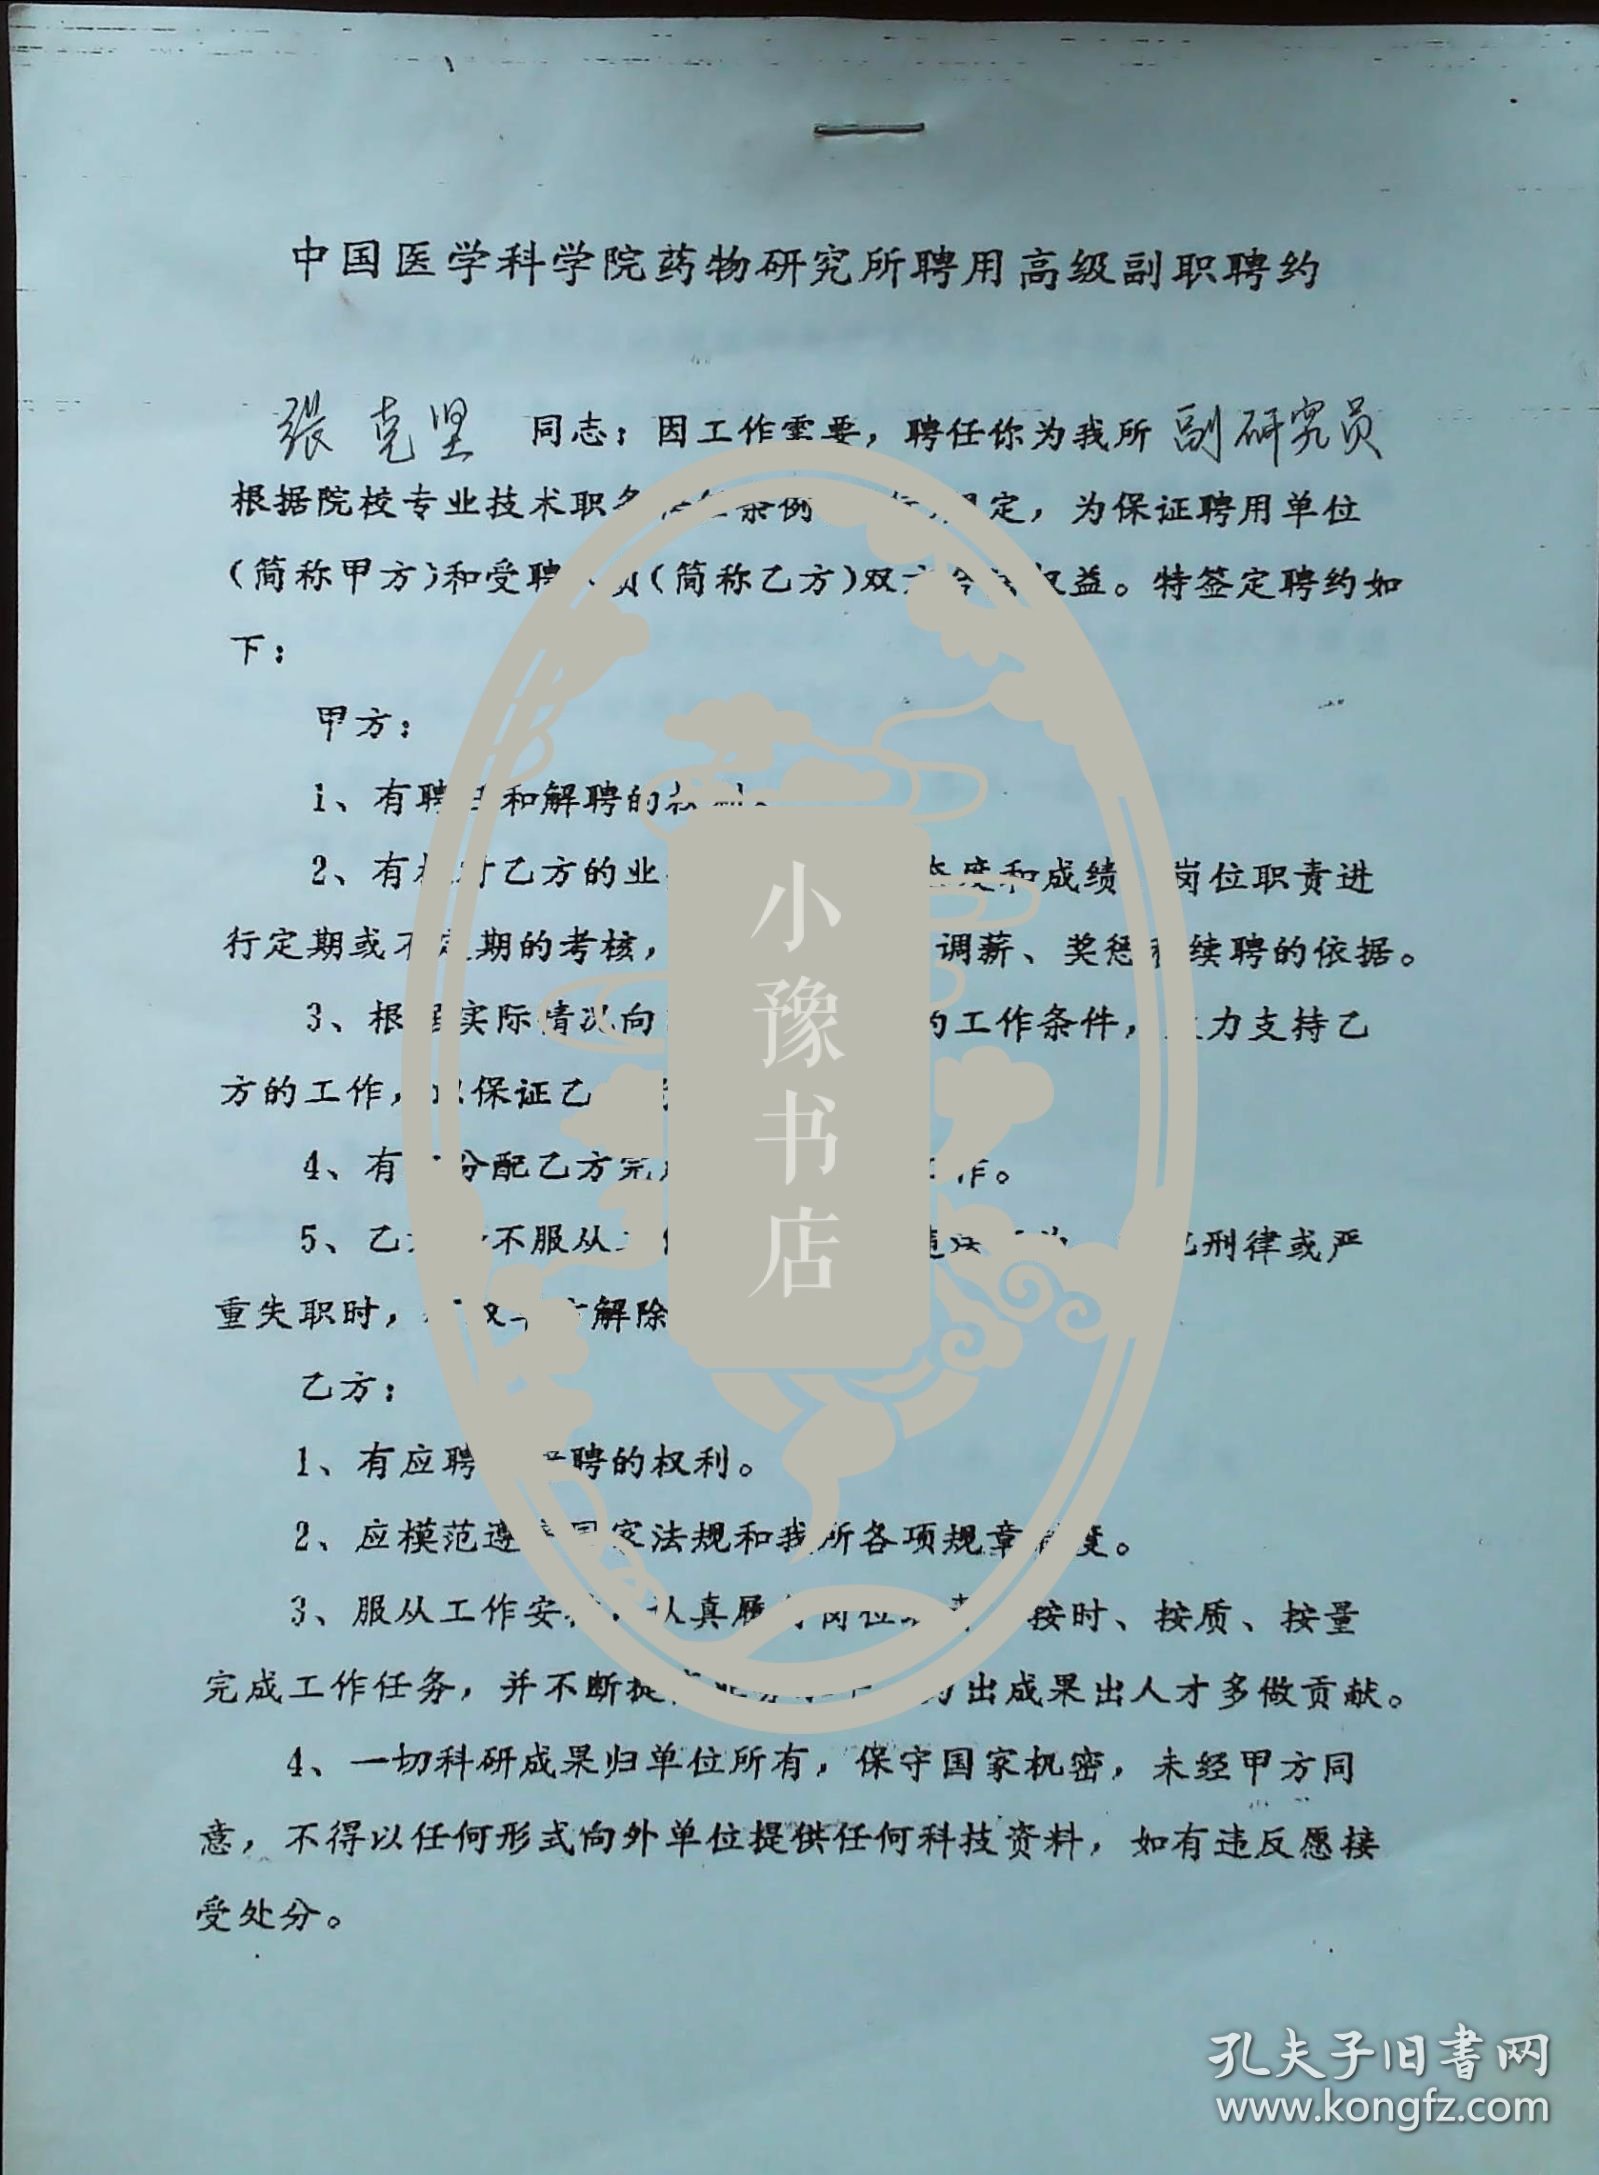 中国医学科学院药物研究所聘用高级副职聘约
张克坚 同志：因工作需要，聘任你为我所 副研究员
根据院校专业技术职务 条例 定，为保证聘用单位
（简称甲方）和受聘 员（简称乙方）双方 权益。特签定聘约如
下：
甲方：
1、有聘 和解聘的权利。
2、有权对乙方的业 态度和成绩 岗位职责进
行定期或不定期的考核， 调薪、奖惩和续聘的依据。
3、根据实际情况向 的工作条件， 力支持乙
方的工作，以保证乙
4、有 分配乙方完 工作。
5、乙方 不服从工 违法 犯刑律或严
重失职时，有权单方解除
乙方：
1、有应聘 聘的权利。
2、应模范遵守国家法规和我所各项规章制度。
3、服从工作安排，认真履行岗位职责 按时、按质、按量
完成工作任务，并不断提高业务水平 为出成果出人才多做贡献。
4、一切科研成果归单位所有，保守国家机密，未经甲方同
意，不得以任何形式向外单位提供任何科技资料，如有违反愿接
受处分。
小豫书店
孔夫子旧书网
www.kongfz.com